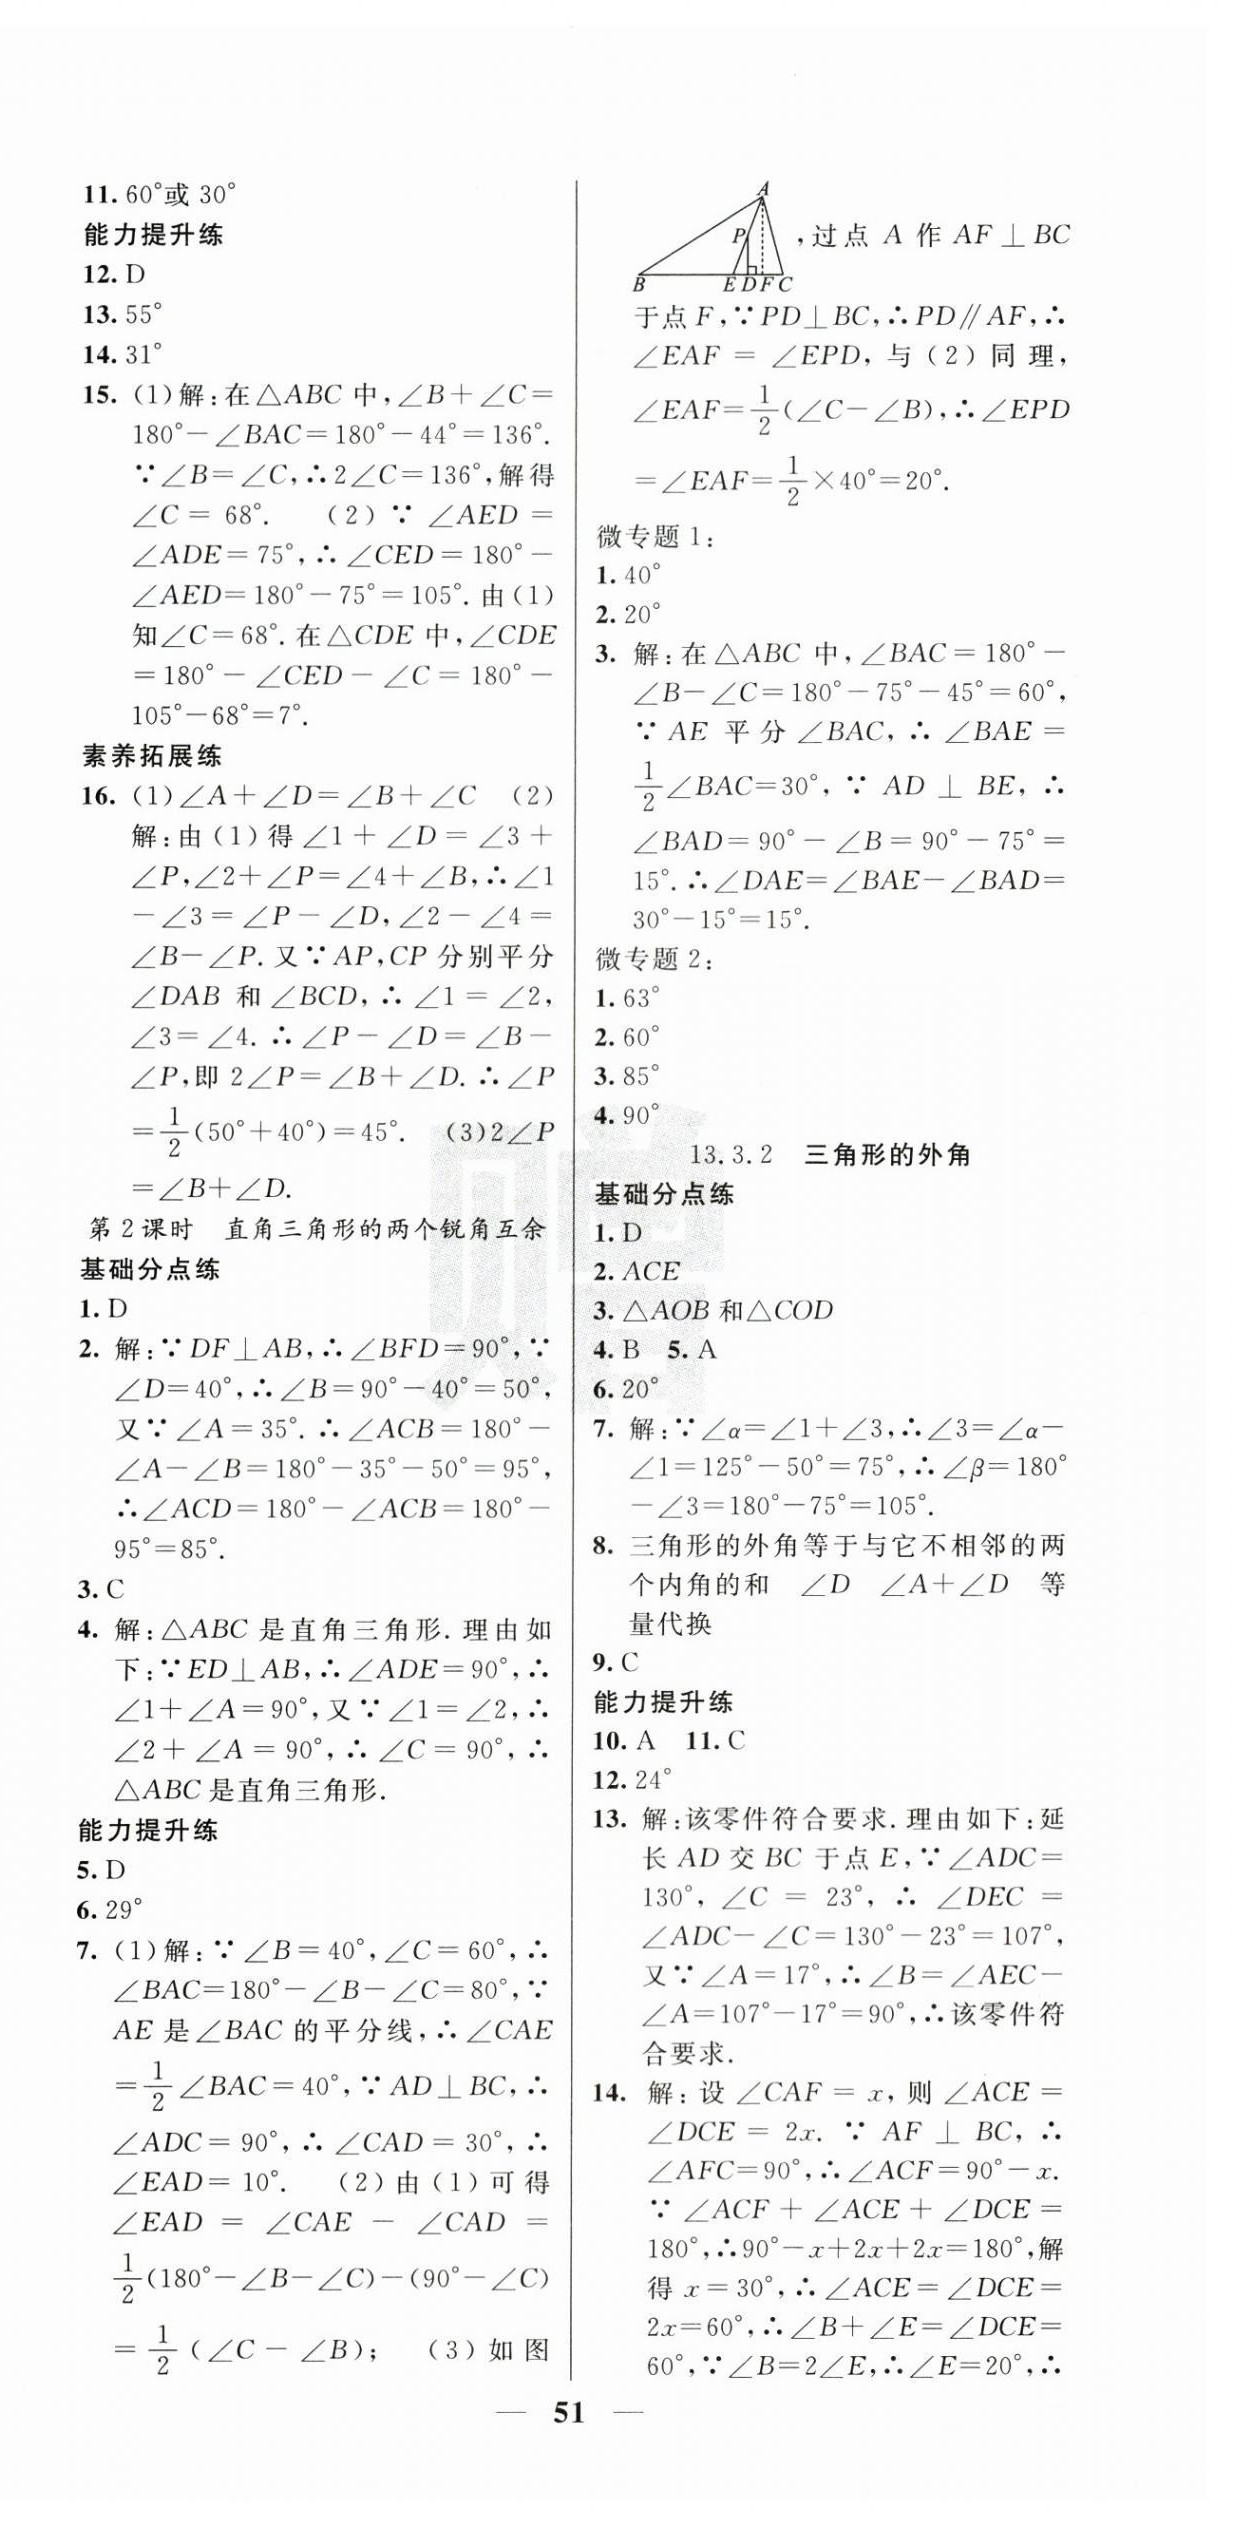 11. 60°或 30°
能力提升练
12. D
13. 55°
14. 31°
15. (1)解:在△ABC 中,∠B+∠C=
180°-∠BAC=180°-44°=136°.
∵∠B=∠C,∴2∠C=136°,解得
∠C=68°. (2)∵∠AED=
∠ADE=75°,∴∠CED=180°-
∠AED=180°-75°=105°.由(1)
知∠C=68°.在△CDE 中,∠CDE
=180°-∠CED-∠C=180°-
105°-68°=7°.
素养拓展练
16. (1)∠A+∠D=∠B+∠C (2)
解:由(1)得∠1+∠D=∠3+
∠P,∠2+∠P=∠4+∠B,∴∠1
-∠3=∠P-∠D,∠2-∠4=
∠B-∠P.又∵AP,CP 分别平分
∠DAB 和∠BCD,∴∠1=∠2,
∠3=∠4.∴∠P-∠D=∠B-
∠P,即 2∠P=∠B+∠D.∴∠P
=1/2(50°+40°)=45°. (3)2∠P
=∠B+∠D.
第 2 课时 直角三角形的两个锐角互余
基础分点练
1. D
2. 解:∵DF⊥AB,∴∠BFD=90°,∵
∠D=40°,∴∠B=90°-40°=50°,
又∵∠A=35°.∴∠ACB=180°-
∠A-∠B=180°-35°-50°=95°,
∴∠ACD=180°-∠ACB=180°-
95°=85°.
3. C
4. 解:△ABC 是直角三角形.理由如
下:∵ED⊥AB,∴∠ADE=90°,∴
∠1+∠A=90°,又∵∠1=∠2,∴
∠2+∠A=90°,∴∠C=90°,∴
△ABC 是直角三角形.
能力提升练
5. D
6. 29°
7. (1)解:∵∠B=40°,∠C=60°,∴
∠BAC=180°-∠B-∠C=80°,∵
AE 是∠BAC 的平分线,∴∠CAE
=1/2∠BAC=40°,∵AD⊥BC,∴
∠ADC=90°,∴∠CAD=30°,∴
∠EAD=10°. (2)由(1)可得
∠EAD=∠CAE-∠CAD=
1/2(180°-∠B-∠C)-(90°-∠C)
=1/2(∠C-∠B); (3)如图
A
P
B E D F C
,过点 A 作 AF⊥BC
于点 F,∵PD⊥BC,∴PD∥AF,∴
∠EAF=∠EPD,与(2)同理,
∠EAF=1/2(∠C-∠B),∴∠EPD
=∠EAF=1/2×40°=20°.
微专题 1:
1. 40°
2. 20°
3. 解:在△ABC 中,∠BAC=180°-
∠B-∠C=180°-75°-45°=60°,
∵AE 平分∠BAC,∴∠BAE=
1/2∠BAC=30°,∵AD⊥BE,∴
∠BAD=90°-∠B=90°-75°=
15°.∴∠DAE=∠BAE-∠BAD=
30°-15°=15°.
微专题 2:
1. 63°
2. 60°
3. 85°
4. 90°
13.3.2 三角形的外角
基础分点练
1. D
2. ACE
3. △AOB 和△COD
4. B 5. A
6. 20°
7. 解:∵∠α=∠1+∠3,∴∠3=∠α-
∠1=125°-50°=75°,∴∠β=180°
-∠3=180°-75°=105°.
8. 三角形的外角等于与它不相邻的两
个内角的和 ∠D ∠A+∠D 等
量代换
9. C
能力提升练
10. A 11. C
12. 24°
13. 解:该零件符合要求.理由如下:延
长 AD 交 BC 于点 E,∵∠ADC=
130°,∠C=23°,∴∠DEC=
∠ADC-∠C=130°-23°=107°,
又∵∠A=17°,∴∠B=∠AEC-
∠A=107°-17°=90°,∴该零件符
合要求.
14. 解:设∠CAF=x,则∠ACE=
∠DCE=2x.∵AF⊥BC,∴
∠AFC=90°,∴∠ACF=90°-x.
∵∠ACF+∠ACE+∠DCE=
180°,∴90°-x+2x+2x=180°,解
得 x=30°,∴∠ACE=∠DCE=
2x=60°,∴∠B+∠E=∠DCE=
60°,∵∠B=2∠E,∴∠E=20°,∴
— 51 —